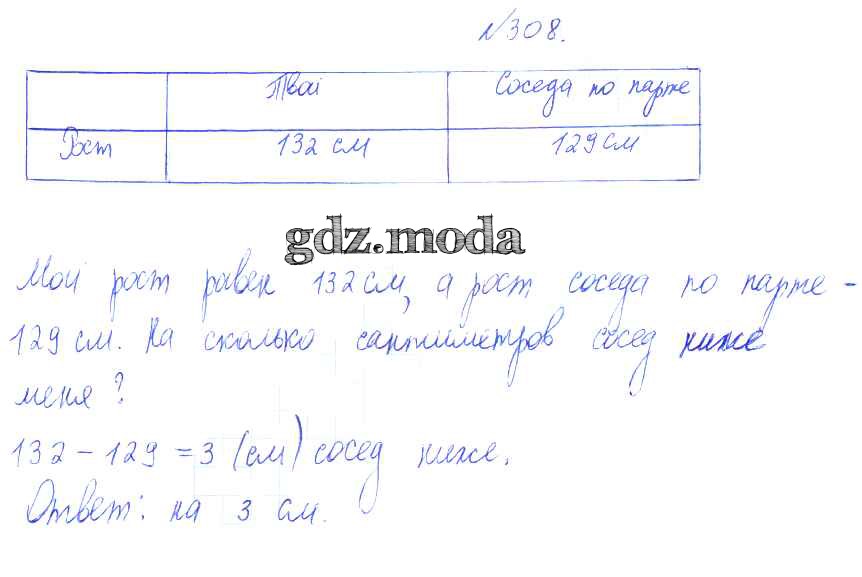 №308.
Твой Соседа по парте
Рост 132 см 129 см
gdz.moda
Мой рост равен 132 см, а рост соседа по парте -
129 см. На сколько сантиметров сосед ниже
меня?
132 - 129 = 3 (см) сосед ниже.
Ответ: на 3 см.